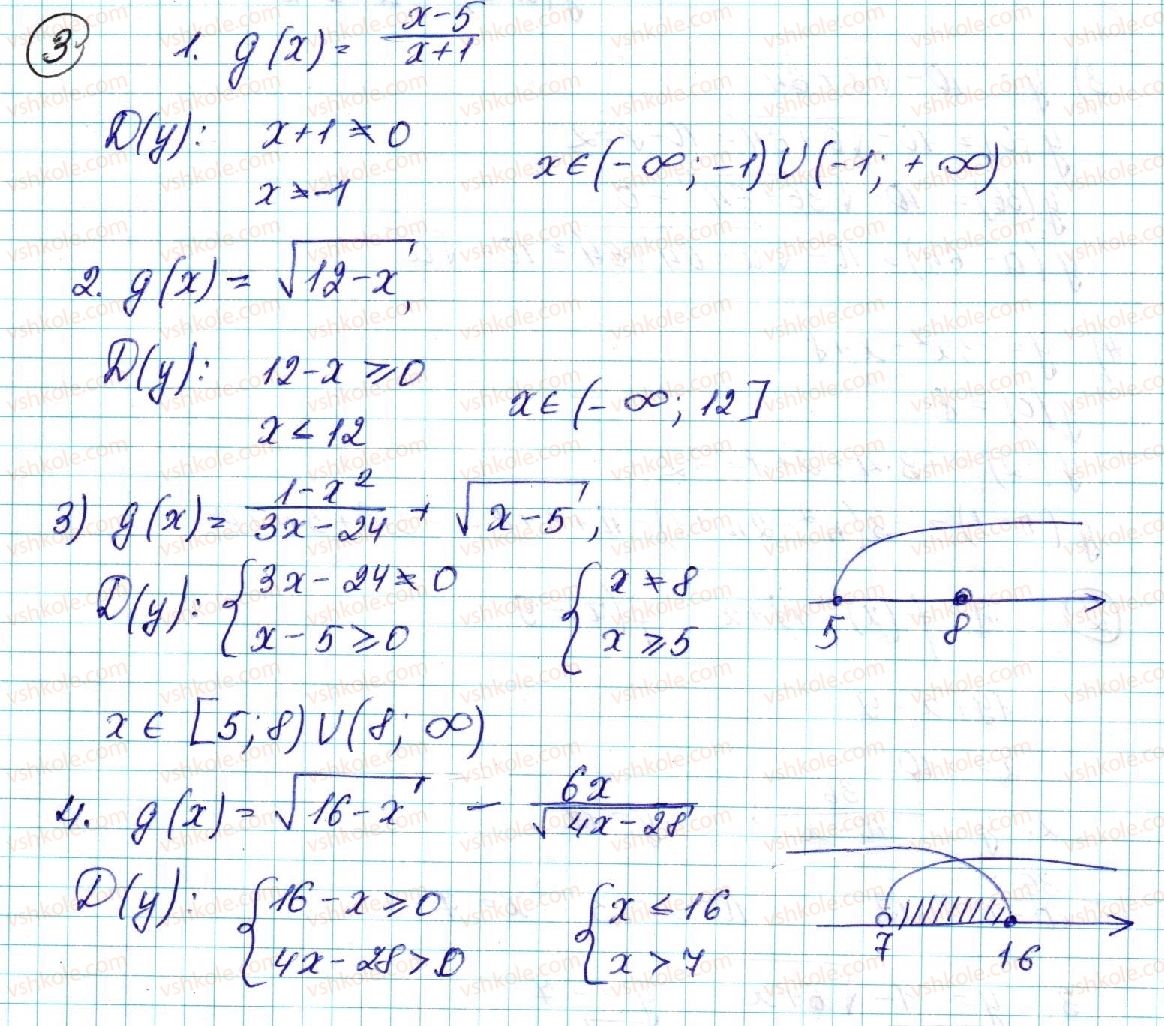 3
1. g(x) = (x-5)/(x+1)
D(y): x+1 ≠ 0
x ≠ -1
x ∈ (-∞; -1) ∪ (-1; +∞)
2. g(x) = √(12-x),
D(y): 12-x ≥ 0
x ≤ 12
x ∈ (-∞; 12]
3) g(x) = (1-x²)/(3x-24) + √(x-5);
D(y): { 3x-24 ≠ 0 { x ≠ 8
x-5 ≥ 0 x ≥ 5
5 8
x ∈ [5; 8) ∪ (8; ∞)
4. g(x) = √(16-x) - 6x/√(4x-28)
D(y): { 16-x ≥ 0 { x ≤ 16
4x-28 > 0 x > 7
7 16
vshkole.com